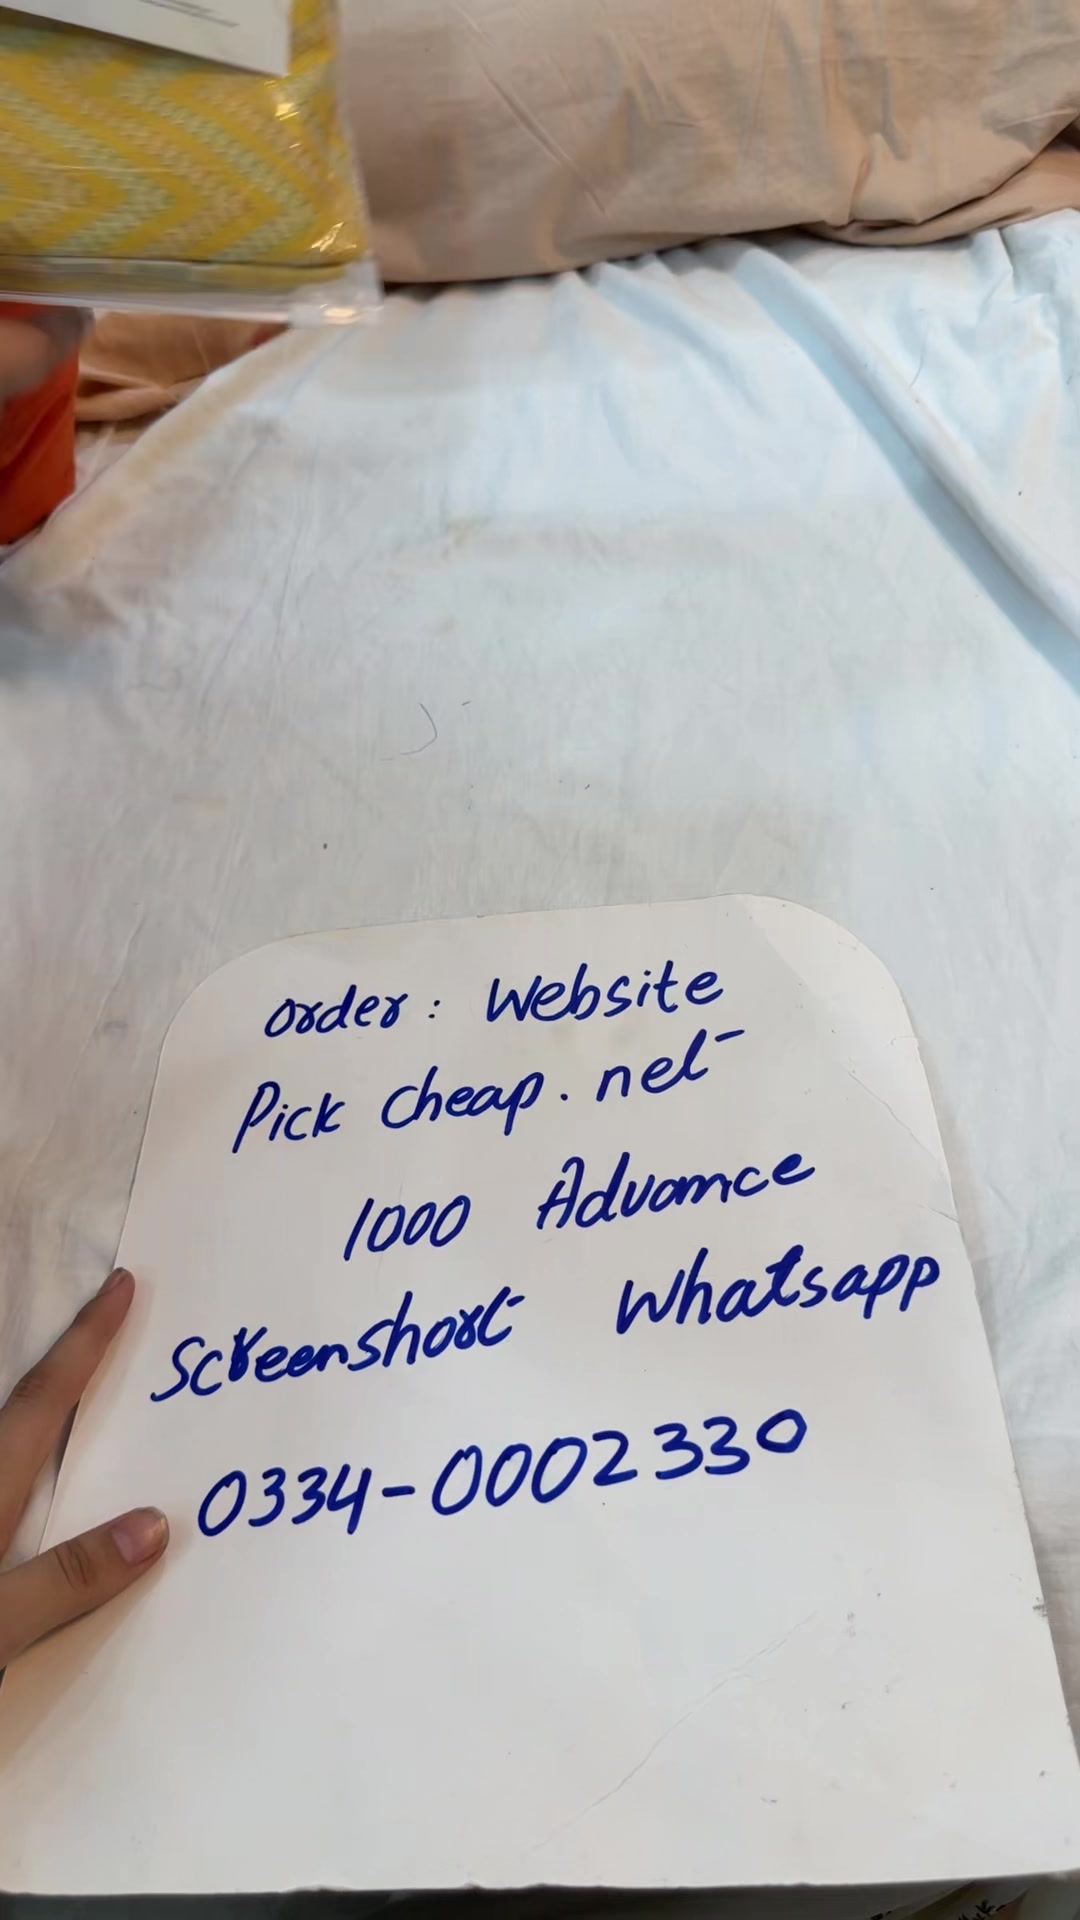 order: Website
Pick cheap.net
1000 Advance
Screenshort Whatsapp
0334-0002330